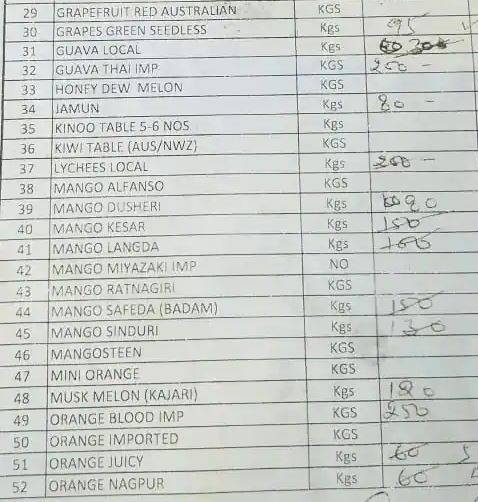 29 GRAPEFRUIT RED AUSTRALIAN KGS
30 GRAPES GREEN SEEDLESS Kgs 95
31 GUAVA LOCAL Kgs
32 GUAVA THAI IMP KGS 250 -
33 HONEY DEW MELON KGS
34 JAMUN Kgs 80 -
35 KINOO TABLE 5-6 NOS Kgs
36 KIWI TABLE (AUS/NWZ) KGS
37 LYCHEES LOCAL Kgs 200 -
38 MANGO ALFANSO KGS
39 MANGO DUSHERI Kgs
40 MANGO KESAR Kgs 150
41 MANGO LANGDA Kgs 160
42 MANGO MIYAZAKI IMP NO
43 MANGO RATNAGIRI KGS
44 MANGO SAFEDA (BADAM) Kgs 150
45 MANGO SINDURI Kgs 130
46 MANGOSTEEN KGS
47 MINI ORANGE KGS
48 MUSK MELON (KAJARI) Kgs 120
49 ORANGE BLOOD IMP KGS 250
50 ORANGE IMPORTED KGS
51 ORANGE JUICY Kgs 60
52 ORANGE NAGPUR Kgs 60